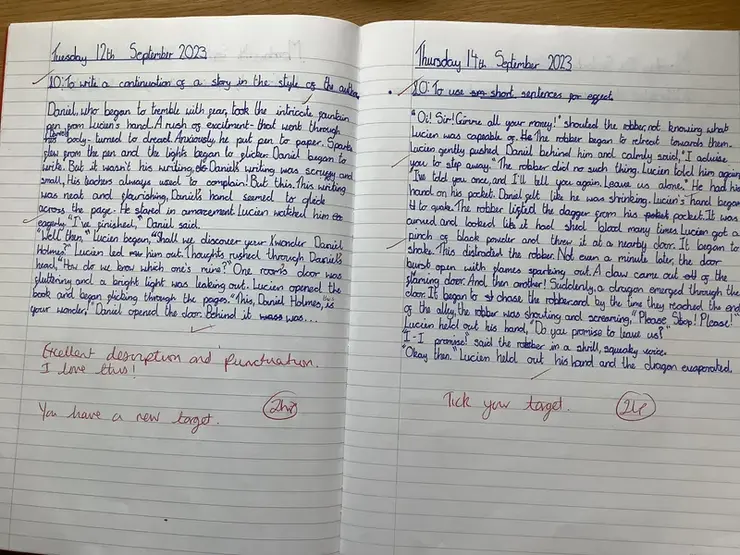 Tuesday 12th September 2023
LO: To write a continuation of a story in the style of the author
Daniel, who began to tremble with fear, took the intricate fountain
pen from Lucien's hand. A rush of excitment - that went through
his body - turned to dread. Anxiously, he put pen to paper. Sparks
flew from the pen and the lights began to flicker. Daniel began to
write. But it wasn't his writing, Daniel's writing was scruffy and
small, His teachers always used to complain! But this. This writing
was neat and flourishing, Daniel's hand seemed to glide
across the page. He stared in amazement. Lucien watched him
eagerly. "I've finished," Daniel said.
"Well then." Lucien began, "Shall we discover your Kwonder Daniel
Holmes?" Lucien led him out. Thoughts rushed through Daniel's
head, "How do we know which one's mine?" One room's door was
fluttering and a bright light was leaking out. Lucien opened the
book and began flicking through the pages. "This, Daniel Holmes, is
your wonder." Daniel opened the door. Behind it was...
Excellent description and punctuation.
I love this!
You have a new target.
2hp
Thursday 14th September 2023
LO: To use short sentences for effect
"Oi! Sir! Gimme all your money!" shouted the robber, not knowing what
Lucien was capeable of. The robber began to retreat towards them.
Lucien gently pushed Daniel behind him and calmly said, "I advise
you to step away." The robber did no such thing. Lucien told him again
"I've told you once, and I'll tell you again. Leave us alone." He had his
hand on his pocket. Daniel felt like he was shrinking. Lucien's hand began
to quake. The robber lifted the dagger from his pocket. It was
curved and looked like it had shed blood many times. Lucien got a
pinch of black powder and threw it at a nearby door. It began to
shake. This distracted the robber. Not even a minute later, the door
burst open with flames sparking out. A claw came out of the
flaming door. And then another! Suddenly, a dragon emerged through the
door. It began to chase the robber and by the time they reached the end
of the alley, the robber was shouting and screaming, "Please Stop! Please!"
Lucien held out his hand, "Do you promise to leave us?"
"I-I promise" said the robber in a shrill, squeaky voice.
"Okay then." Lucien held out his hand and the dragon evaporated.
Tick your target.